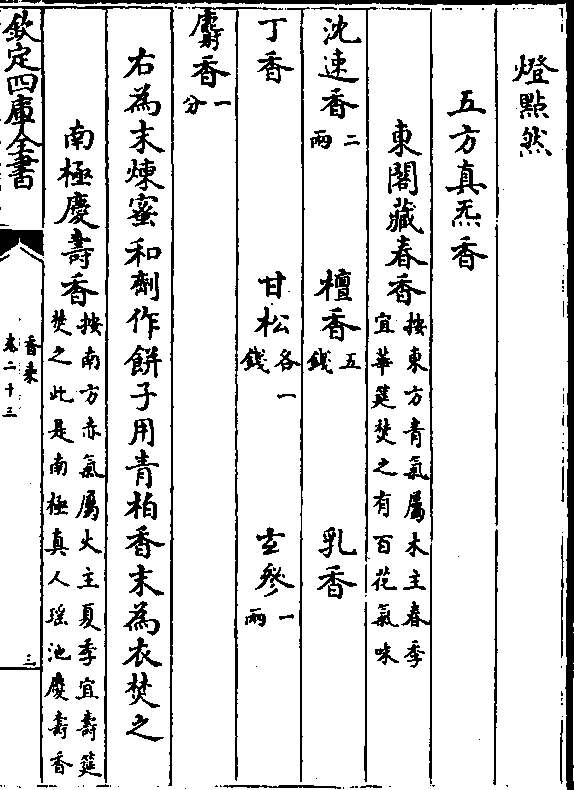 燈㸃然
五方真炁香
東閣藏春香按東方青氣屬木主春季宜華筵焚之有百花氣味
沈速香二兩 檀香五錢 乳香
丁香 甘松各一錢 玄參一兩
麝香一分
右為末煉蜜和劑作餅子用青柏香末為衣焚之
南極慶壽香按南方赤氣屬火主夏季宜壽筵焚之此是南極真人瑶池慶壽香
欽定四庫全書
香乗
卷二十三
三